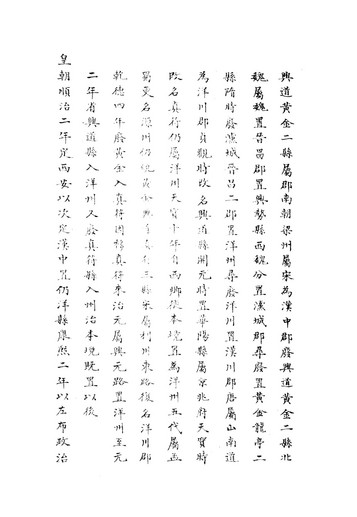 興道黃金二縣屬郡南朝梁州屬宋為漢中郡廢興道黃金二縣北
魏屬魏置晉昌郡置興勢縣西魏分置儻城郡尋廢置黃金龍亭二
縣隋時廢儻城晉昌二郡置洋州尋廢洋川置漢川郡唐屬山南道
為洋川郡貞觀時改名興道縣開元時置華陽縣屬京兆府天寶時
改名真符仍屬洋州天寶十年自西鄉徙本境置為洋州五代屬
蜀更名源州仍統黃金興道真符三縣宋屬利州東路復名洋川郡
乾德四年廢黃金入真符因移真符來治元屬興元路置洋州至元
二年省興道縣入洋州又廢真符縣入州治本境既置以後
皇
朝順治二年定西安以次定漢中置仍洋縣康熙二年以左布政治